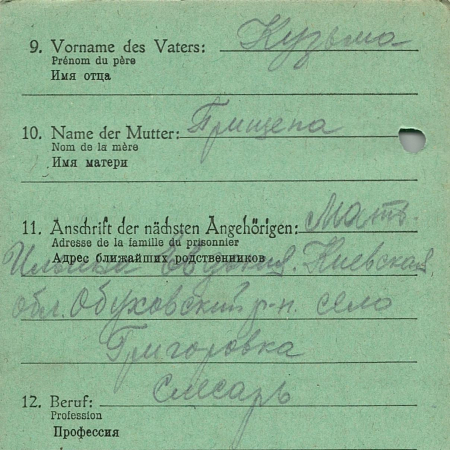 9. Vorname des Vaters: Кузьма
Prénom du père
Имя отца
10. Name der Mutter: Грищепа
Nom de la mère
Имя матери
11. Anschrift der nächsten Angehörigen: Мать.
Adresse de la famille du prisonnier
Адрес ближайших родственников
Евдокия. Киевская
обл. Обуховский р-н. село
Григоровка
12. Beruf: Слесарь
Profession
Профессия